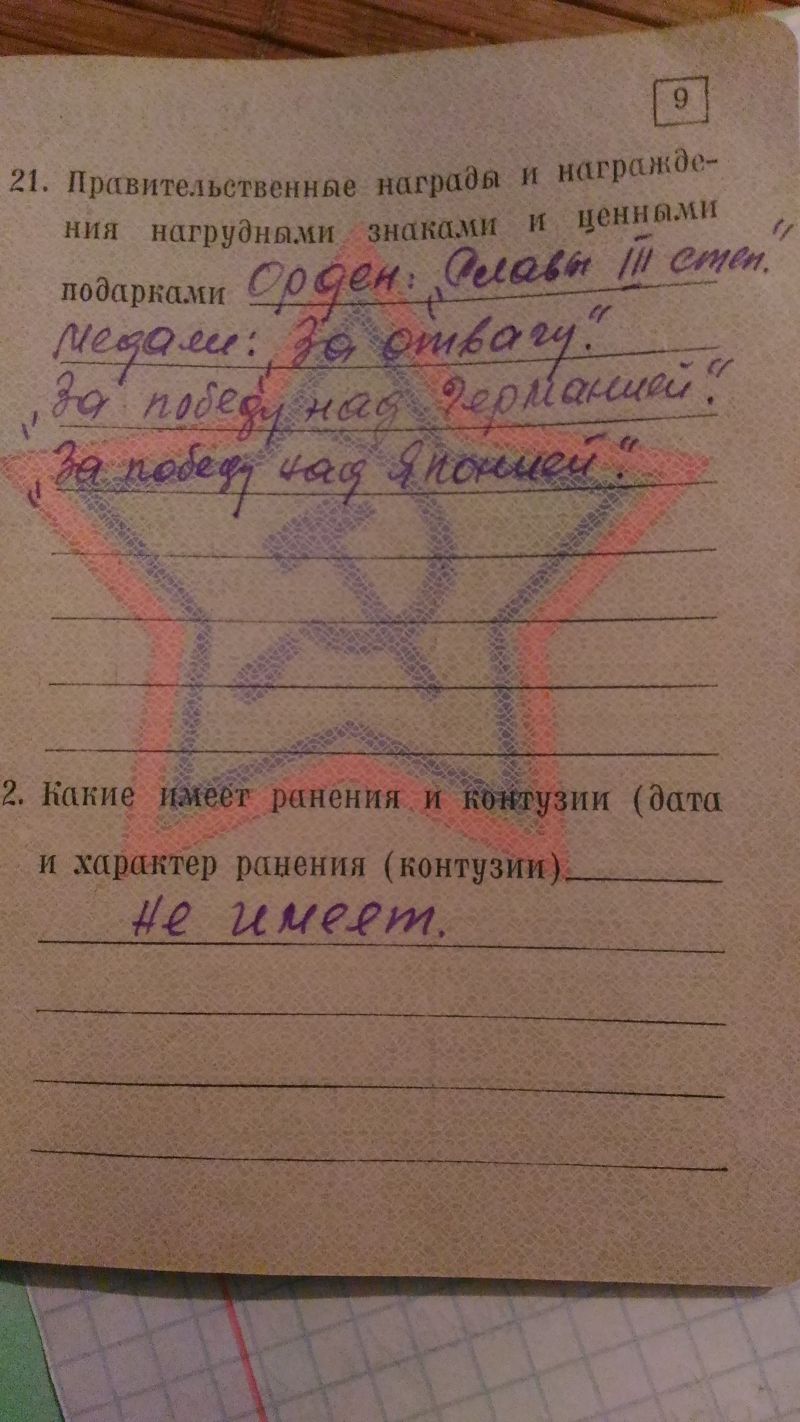 9
21. Правительственные награды и награжде-
ния нагрудными знаками и ценными
подарками Орден: „Славы III степ."
Медали: „За отвагу".
„За победу над Германией".
„За победу над Японией".
2. Какие имеет ранения и контузии (дата
и характер ранения (контузии)
Не имеет.